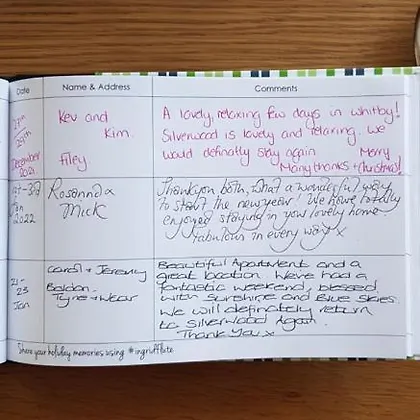 Date Name & Address Comments
29th
December
2021
Kev and
Kim.
Filey.
A lovely, relaxing few days in Whitby!
Silverwood is lovely and relaxing. We
would definatly stay again Merry
Many thanks + Christmas!
Jan
2022
Rosanna &
Mick
Thankyou both, what a wonderful way
to start the new year! We have totally
enjoyed staying in your lovely home
Fabulous in every way x
21-
23
Jan
Carol + Jeremy
Boldon.
Tyne + Wear
Beautiful Apartment and a
great location. We've had a
fantastic weekend, blessed
with sunshine and Blue skies.
We will definately return
to Silverwood Again.
Thank You x
Share your holiday memories using